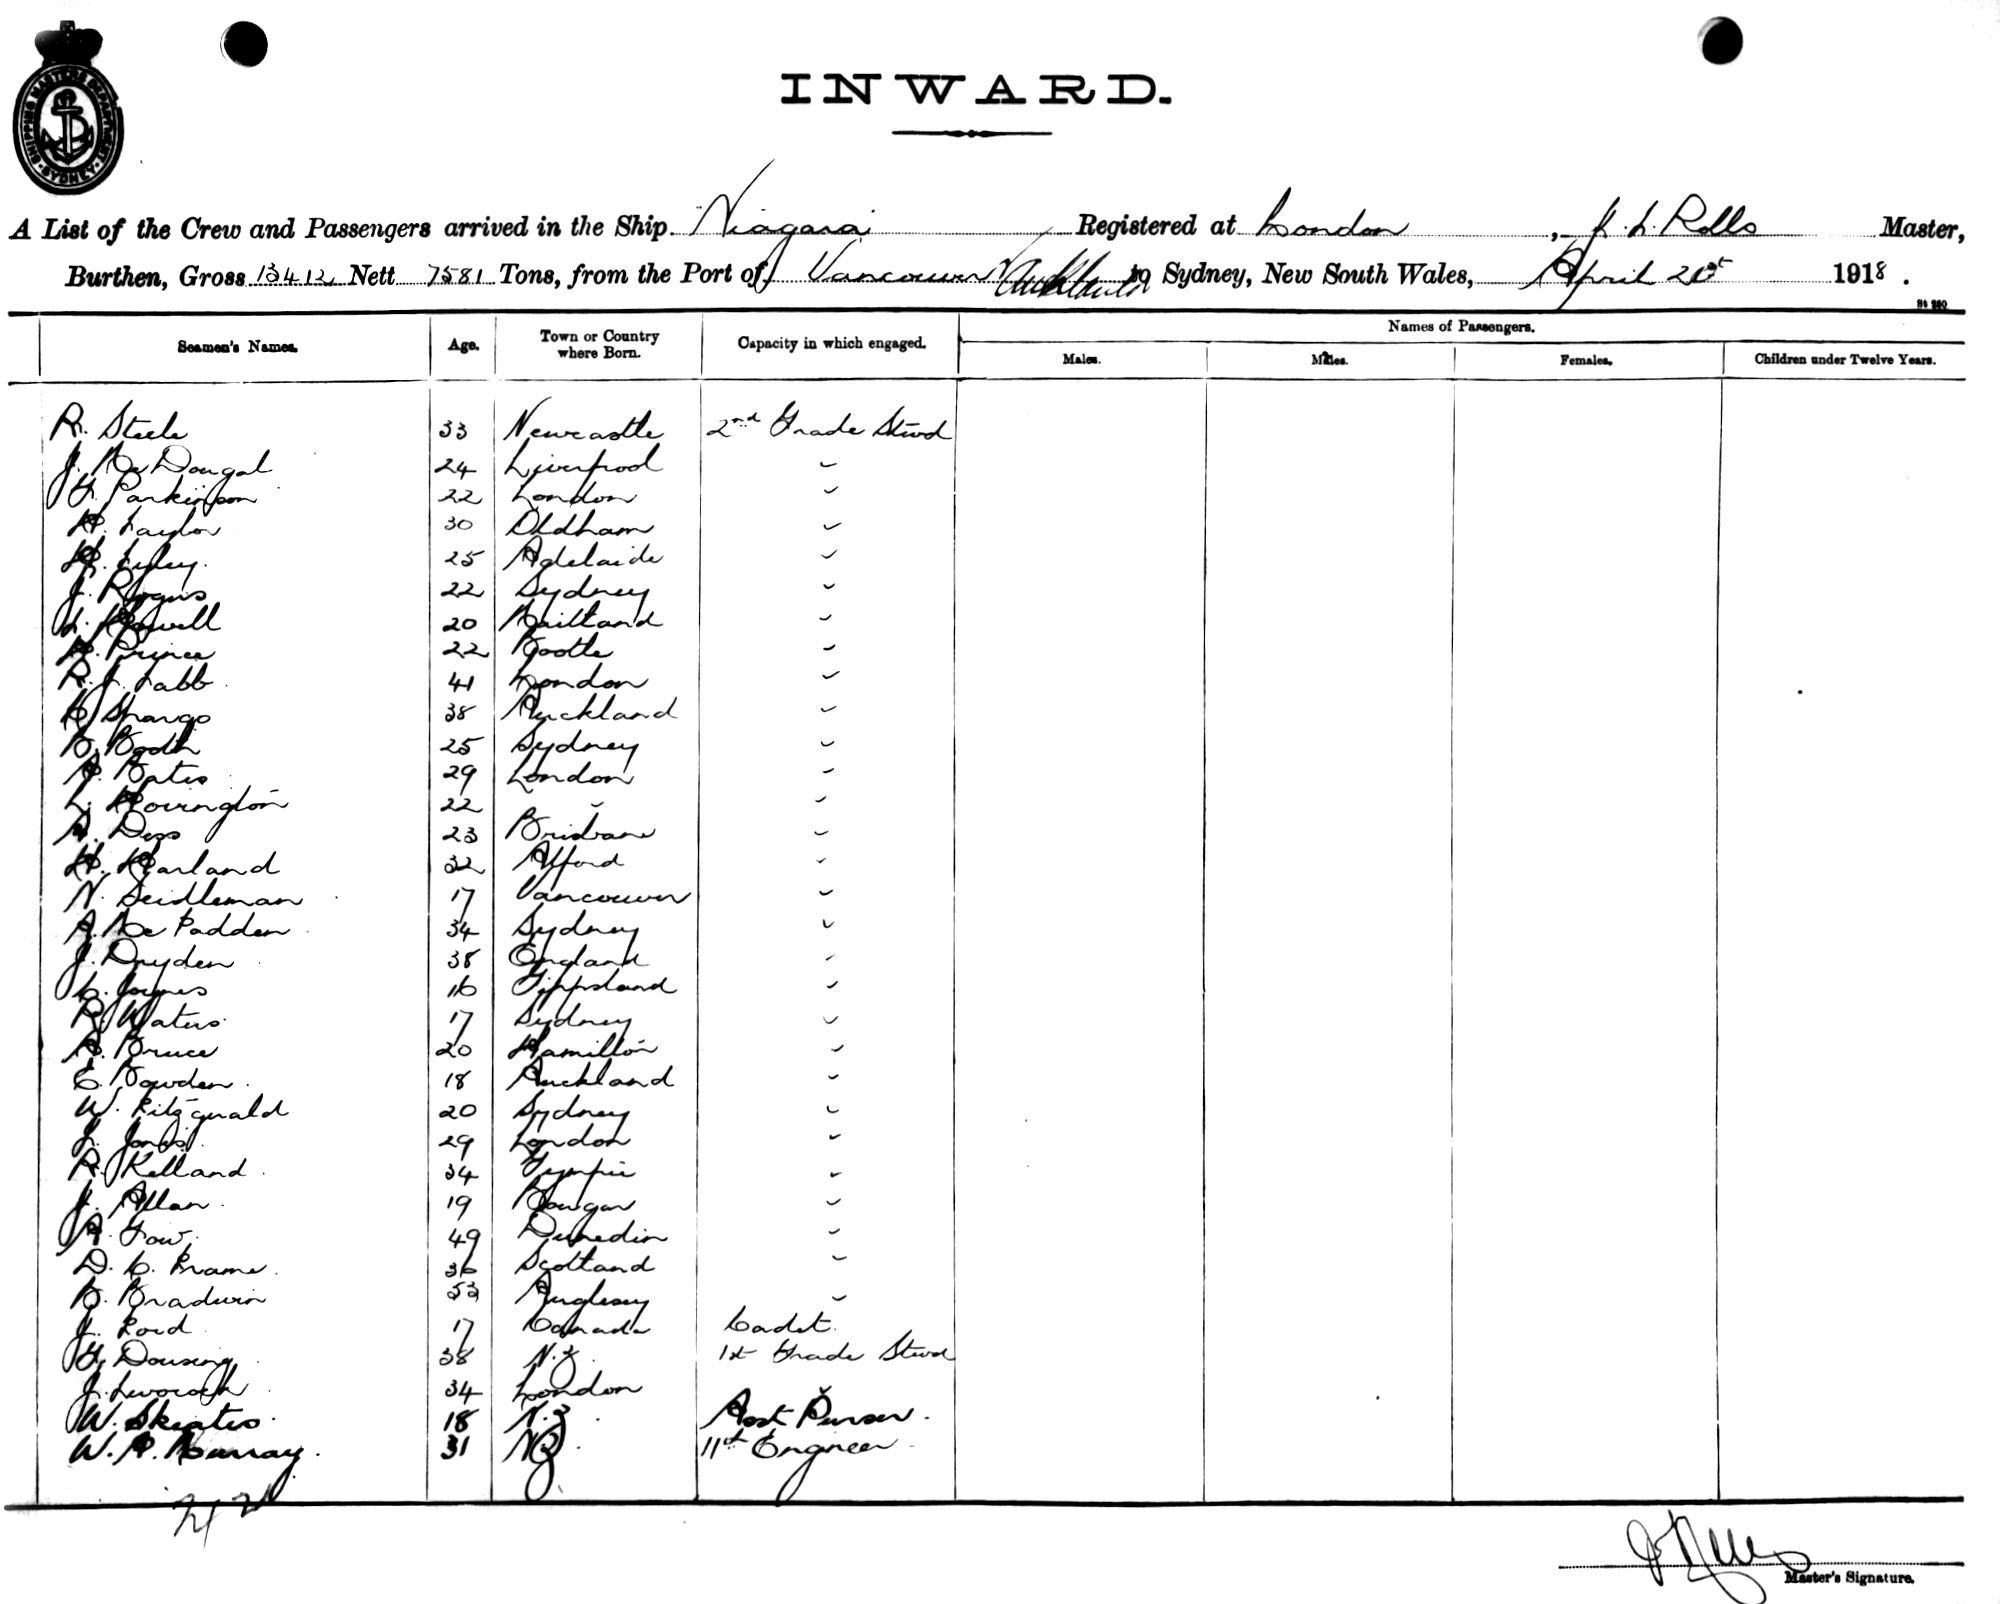 SHIPPING MASTERS DEPARTMENT SYDNEY
INWARD.
A List of the Crew and Passengers arrived in the Ship Niagara Registered at London, J. L. Rolls Master,
Burthen, Gross 13412 Nett 7581 Tons, from the Port of Vancouver Auckland to Sydney, New South Wales, April 1918.
Seamen's Names. Age. Town or Country where Born. Capacity in which engaged. Names of Passengers.
Males. Males. Females. Children under Twelve Years.
R. Steele 33 Newcastle 2nd Grade Stwd
J. McDougal 24 Liverpool "
Parkinson 22 London "
H. Taylor 30 Oldham "
H. 25 Adelaide "
J. Rogers 22 Sydney "
L. 20 Maitland "
Prince 22 Bootle "
R. J. Tabb 41 London "
Shargo 38 Auckland "
B. Booth 25 Sydney "
A. Bates 29 London "
L. 22 " "
Diss 23 Brisbane "
H. Harland 32 Alford "
N. Seidleman 17 Vancouver "
A. McPadden 34 Sydney "
J. Dryden 38 England "
16 Gippsland "
R. Waters 17 Sydney "
A. Bruce 20 Hamilton "
E. Bowden 18 Auckland "
W. Fitzgerald 20 Sydney "
Jones 29 London "
R. Kelland 34 Gympie "
J. Allan 19 "
A. Gow 49 Dunedin "
D. C. Frame 36 Scotland "
B. Bradwin 53 Anglesey "
J. Lord 17 Canada Cadet
Dousing 38 N.Z. 1st Grade Stwd
J. 34 London "
W. Skeates 18 N.Z. Asst Purser
W. A. Murray 31 NZ 11th Engineer
Master's Signature.